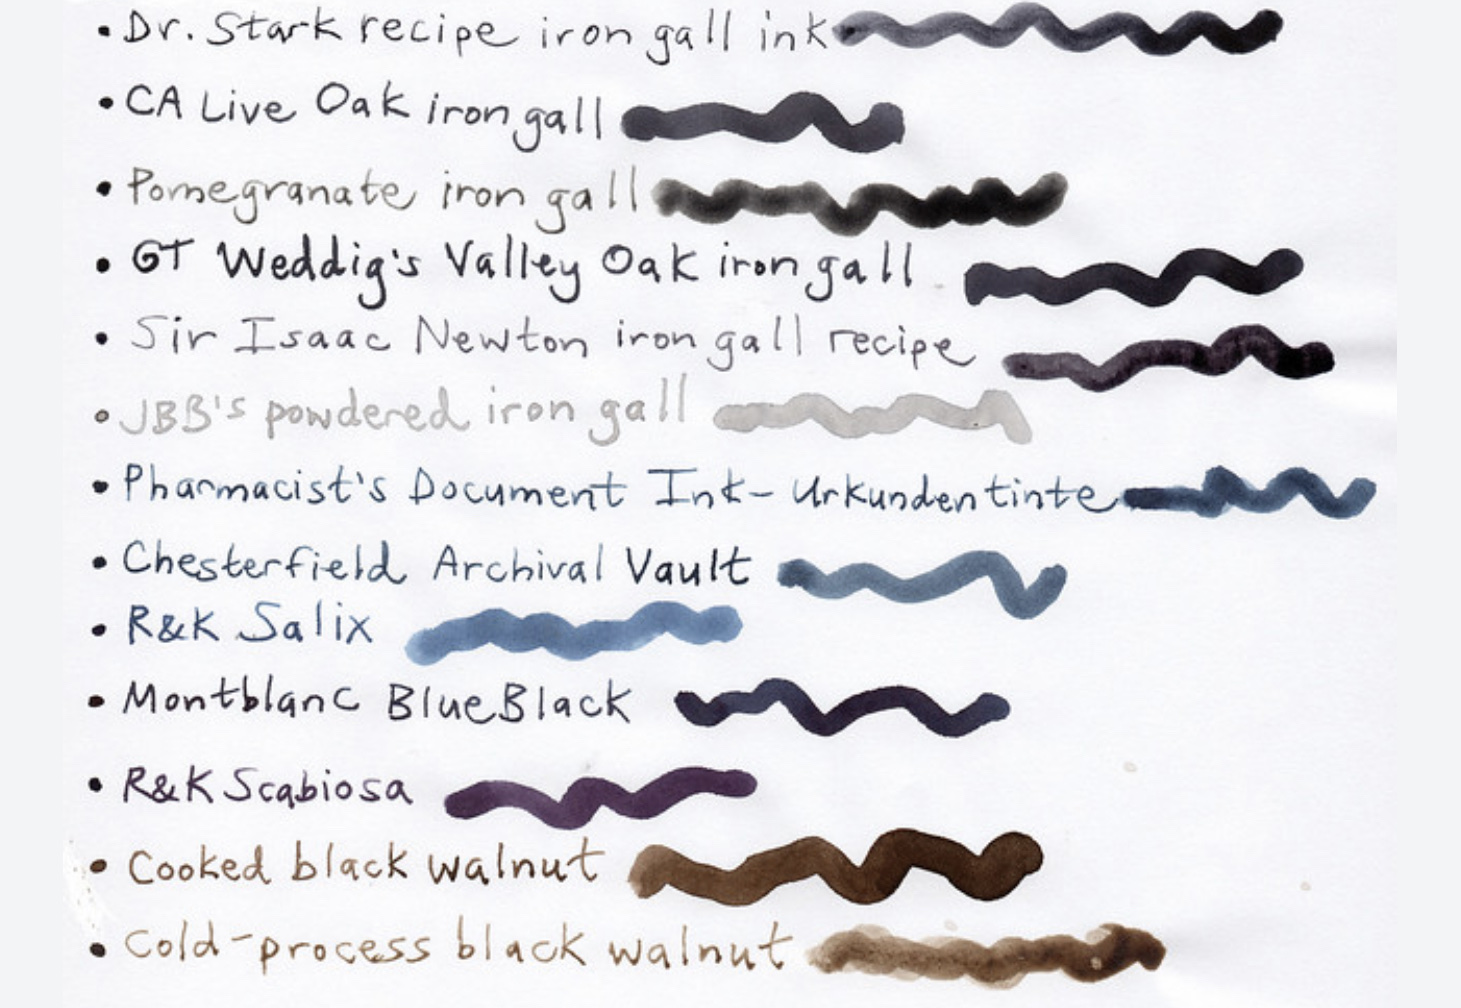 • Dr. Stark recipe iron gall ink
• CA Live Oak iron gall
• Pomegranate iron gall
• GT Weddig's Valley Oak iron gall
• Sir Isaac Newton iron gall recipe
• JBB's powdered iron gall
• Pharmacist's Document Ink - Urkundentinte
• Chesterfield Archival Vault
• R&K Salix
• Montblanc BlueBlack
• R&K Scabiosa
• Cooked black walnut
• Cold-process black walnut